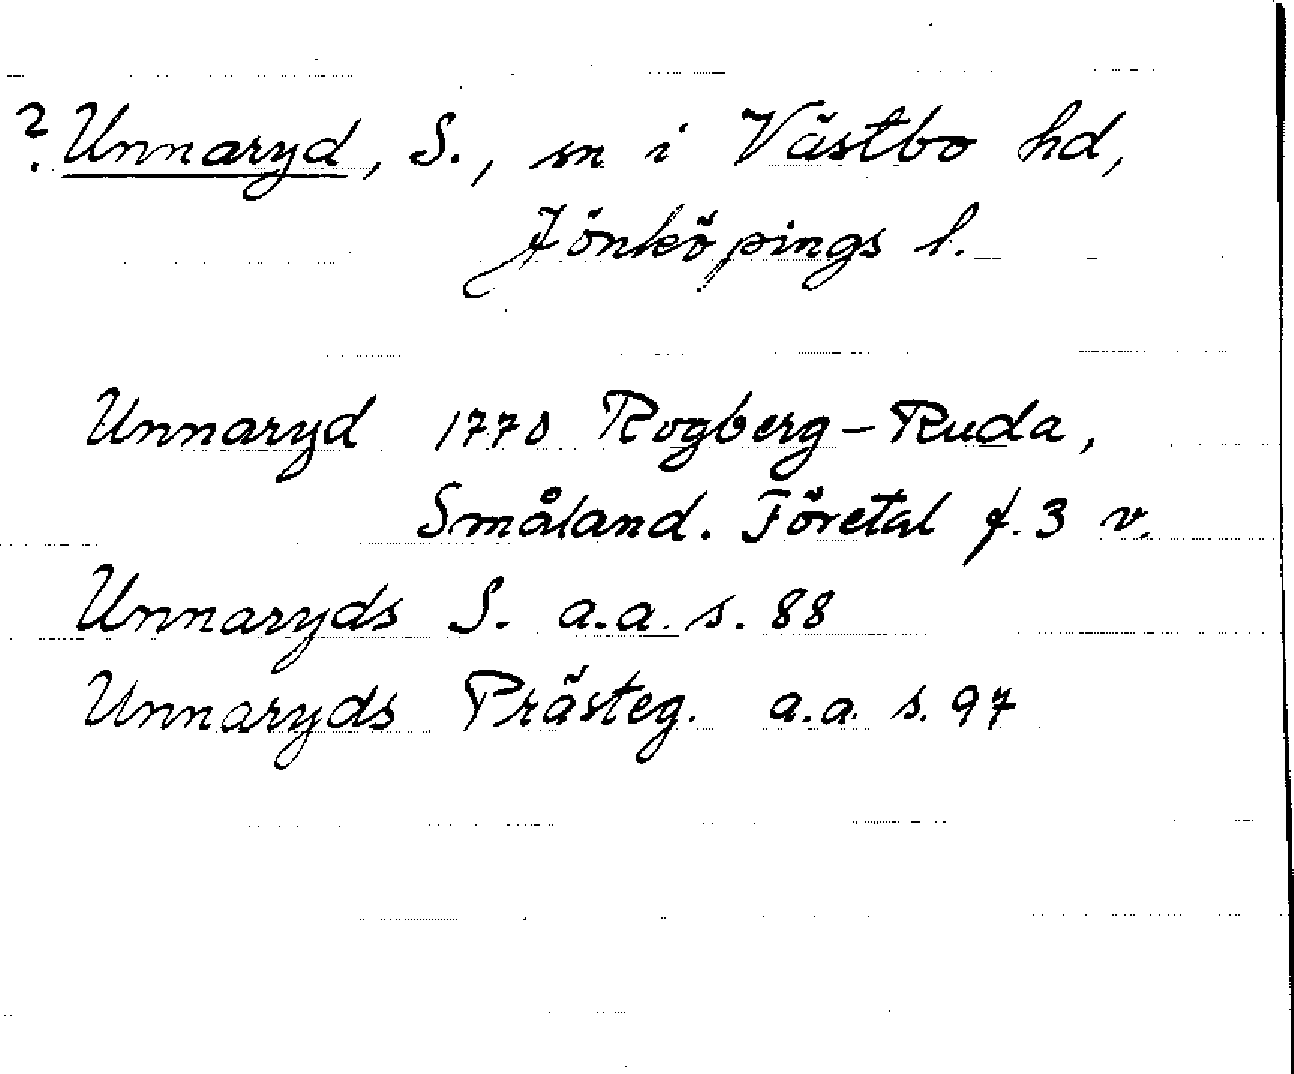 ? Unnaryd, S., sn i Västbo hd,
Jönköpings l.
Unnaryd 1770 Rogberg-Ruda,
Småland. Företal f. 3 v.
Unnaryds S. a.a. s. 88
Unnaryds Prästeg. a.a. s. 97